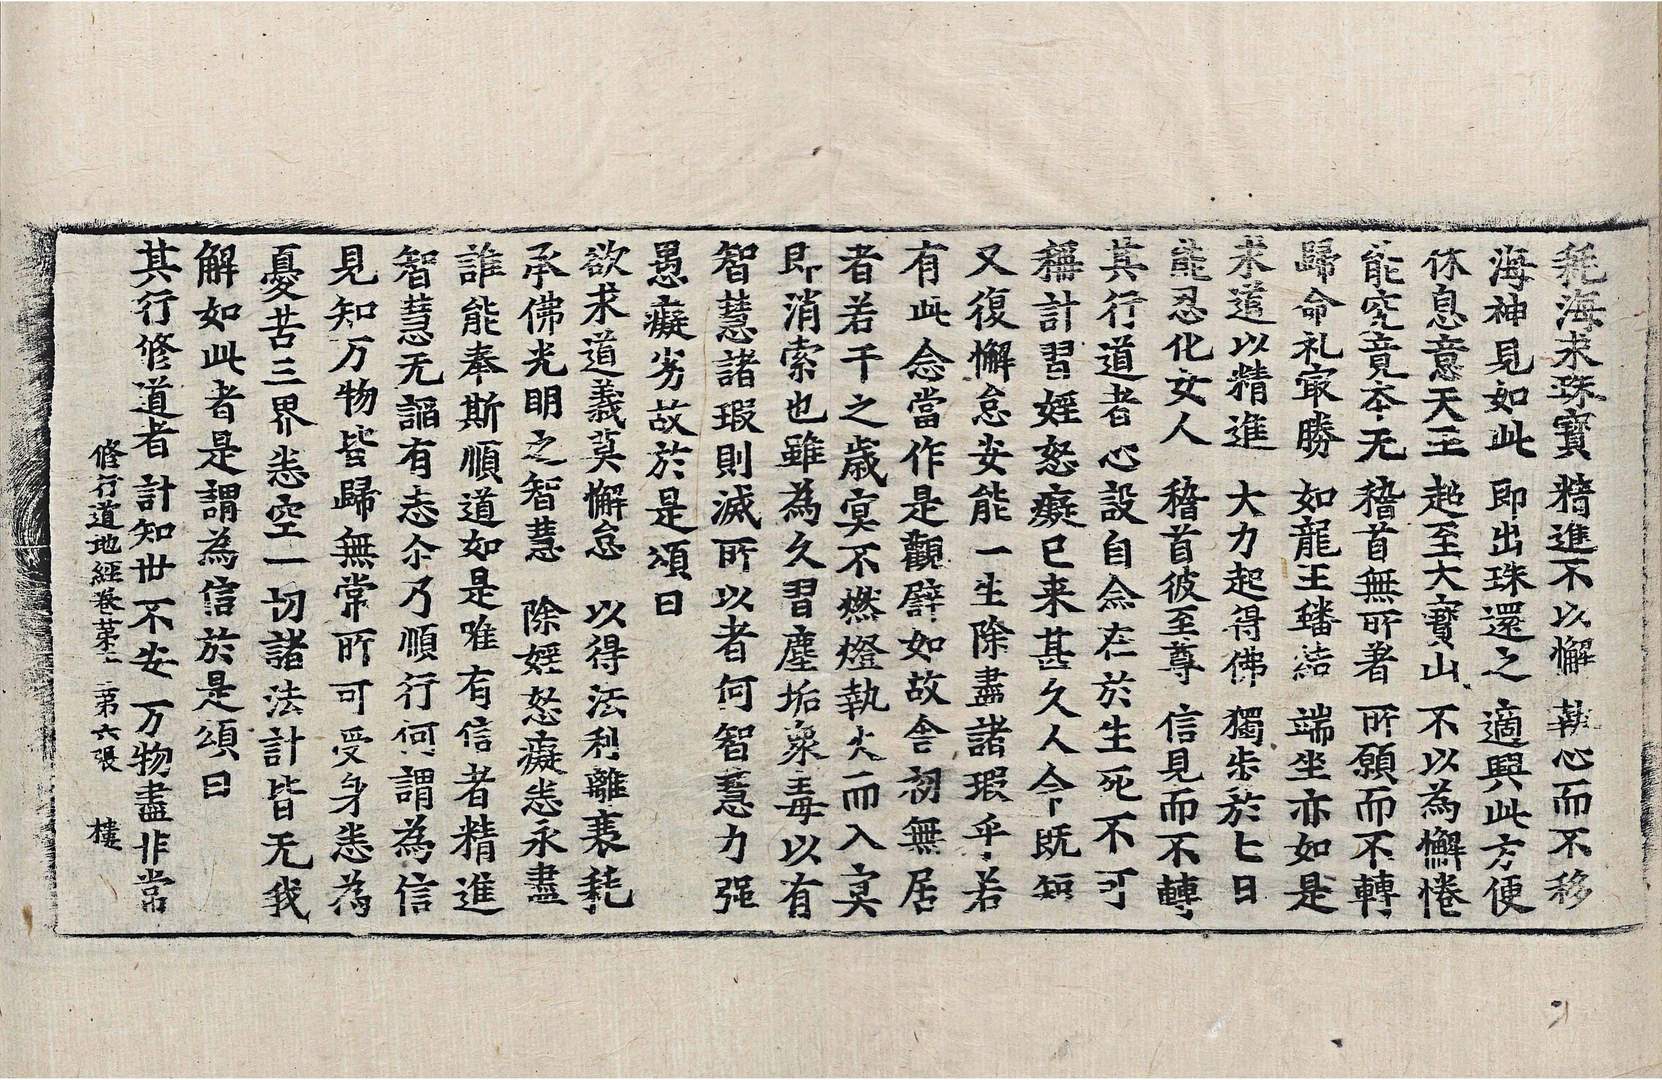 㲉海求珠寶 精進不以懈 執心而不移
海神見如此 即出珠還之 適興此方便
休息意天王 起至大寶山 不以為懈惓
能究竟本无 稽首無所著 所願而不轉
歸命礼冣勝 如龍王蟠結 端坐亦如是
求道以精進 大力起得佛 獨步於七日
能忍化女人 稽首彼至尊 信見而不轉
其行道者心設自念在於生死不可
稱計習婬怒癡已来甚久人命既短
又復懈怠安能一生除盡諸瑕乎若
有此念當作是觀譬如故舍初無居
者若干之歳㝠不燃燈執火而入㝠
即消索也雖為久習塵垢衆毒以有
智慧諸瑕則滅所以者何智慧力强
愚癡劣故於是頌曰
欲求道義莫懈怠 以得法利離衰耗
承佛光明之智慧 除婬怒癡悉永盡
誰能奉斯順道如是唯有信者精進
智慧无謟有志尒乃順行何謂為信
見知万物皆歸無常所可受身悉為
憂苦三界悉空一切諸法計皆无我
解如此者是謂為信於是頌曰
其行修道者 計知世不安 万物盡非常
修行道地經卷苐二 第六張 樓